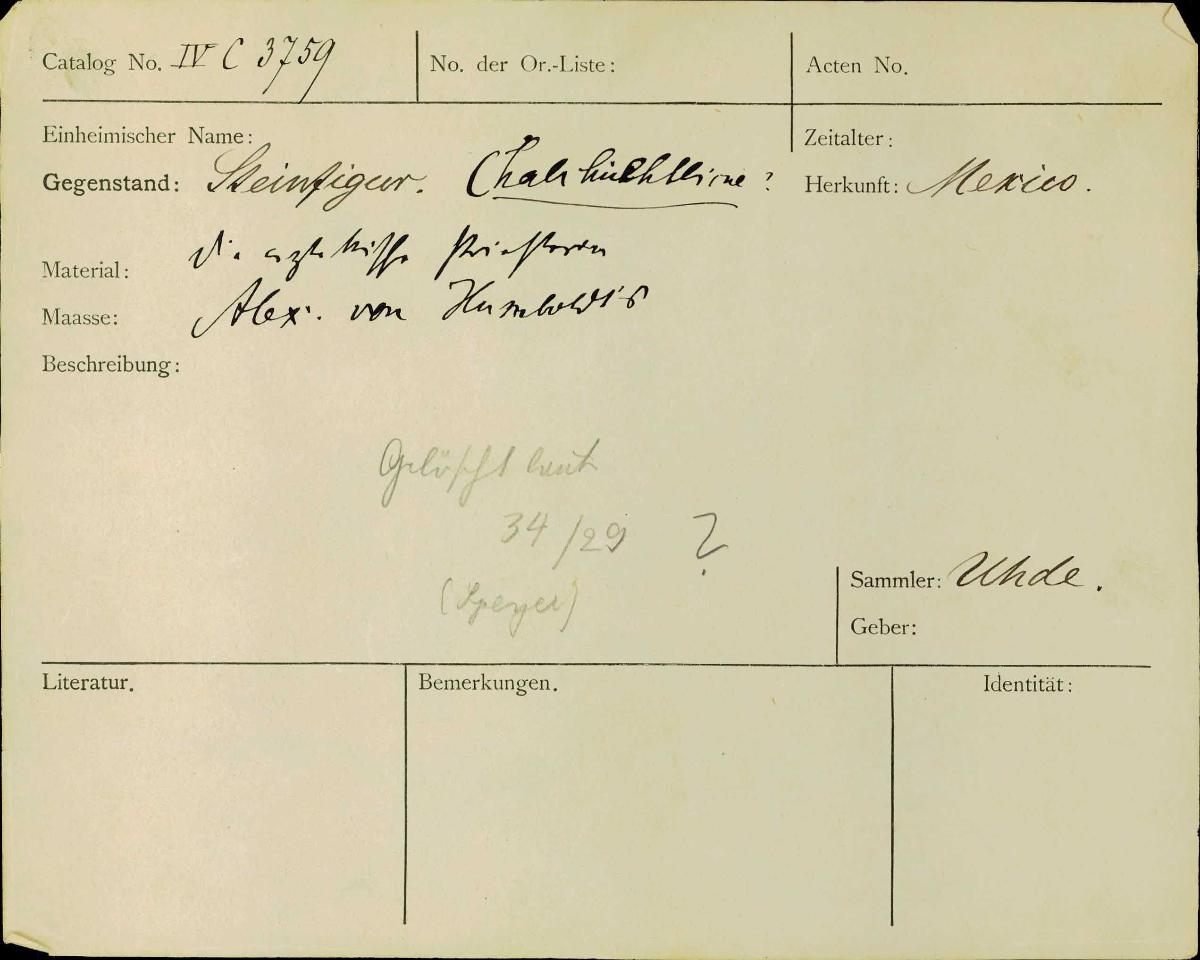 Catalog No. IV C 3759
No. der Or.-Liste:
Acten No.
Einheimischer Name:
Zeitalter:
Gegenstand: Steinfigur. Chalchiuhtlicue?
Herkunft: Mexico.
die aztekische Priesterin
Material:
Alex. von Humboldt's
Maasse:
Beschreibung:
Gelöscht laut
34/29 ?
(Speyer)
Sammler: Uhde.
Geber:
Literatur.
Bemerkungen.
Identität: